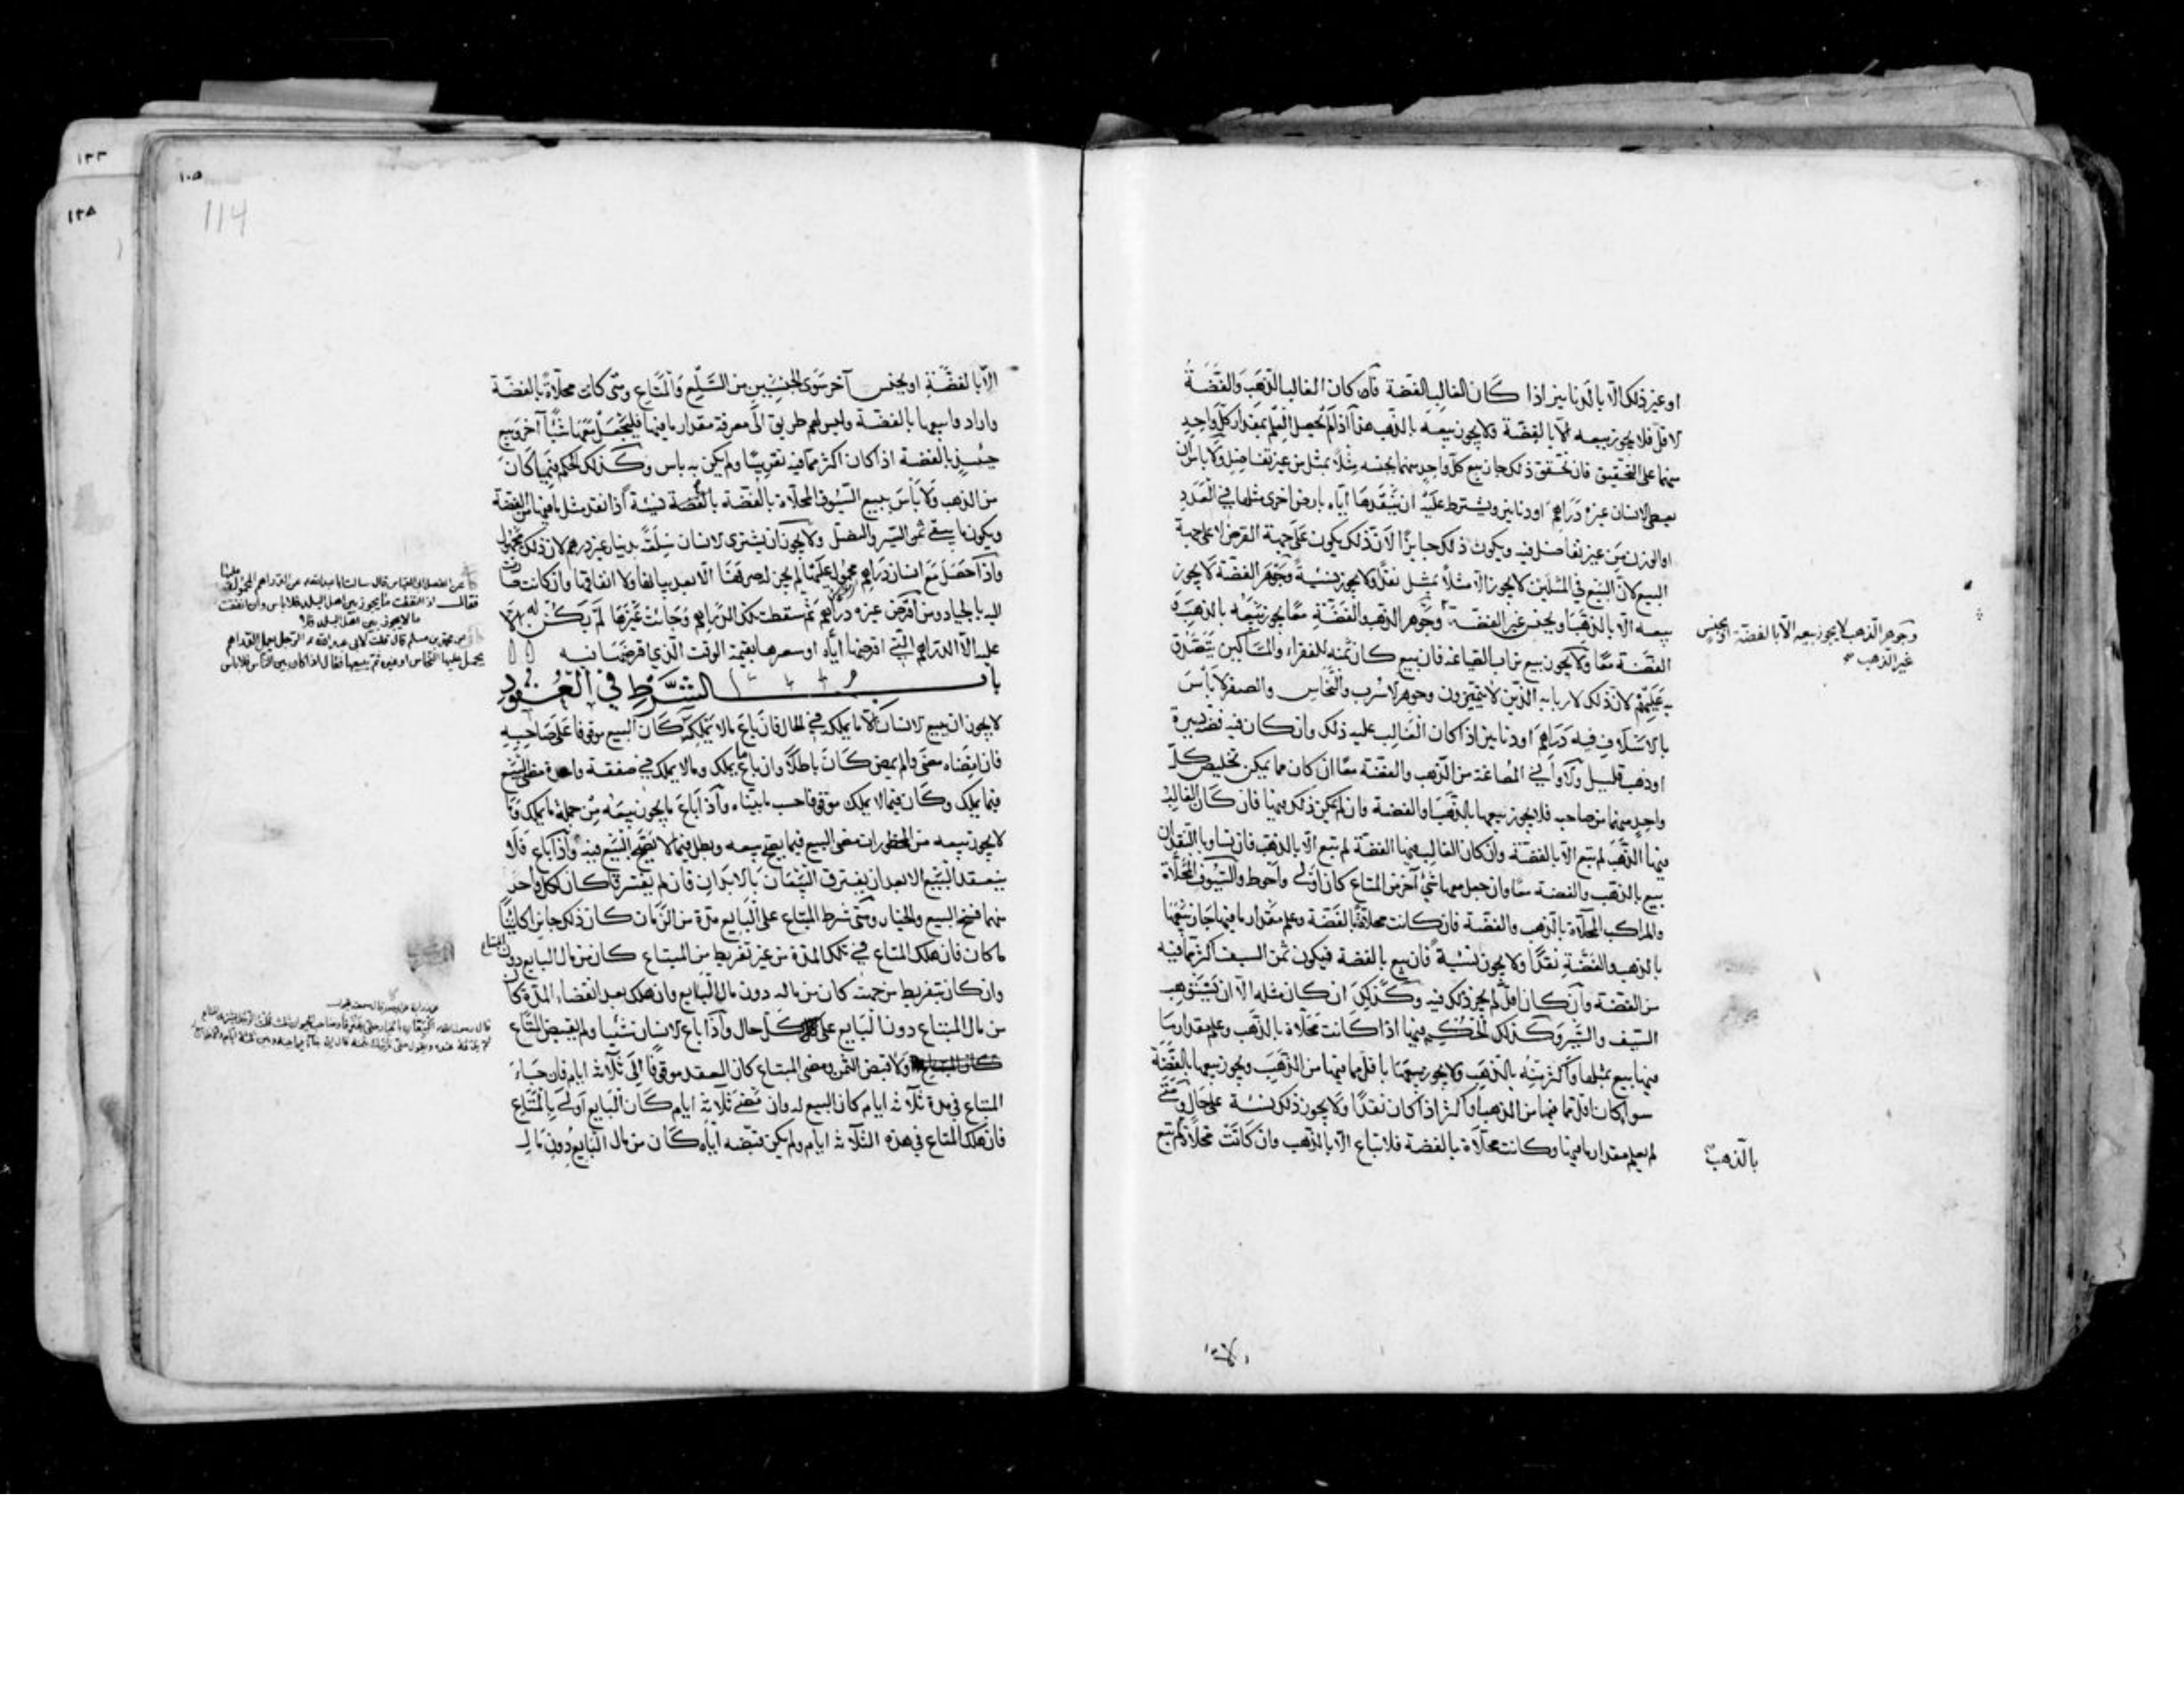 او غير ذلك الّا بالدّنانير اذا كان الغالب الفضة فان كان الغالب الذهب والفضة
الاقل فلا يجوز بيعه الّا بالفضة ولا يجوز بيعه بالذهب هذا اذا لم يحصل العلم بمقدار كلّ واحد
منهما على التحقيق فان تحقق ذلك جاز بيع كلّ واحد منهما بجنسه مثلاً بمثل من غير تفاضل ولا باس ان
يعطى الانسان غيره دراهم او دنانير ويشترط عليه ان ينقدها اياه بارض اخرى مثلها في العدد
او الوزن من غير تفاضل فيه ويكون ذلك جايزاً لانّ ذلك يكون على جهة القرض لا على جهة
البيع لانّ البيع في المثلين لا يجوز الّا مثلاً بمثل نقداً ولا يجوز نسية وجوهر الفضة لا يجوز
بيعه الّا بالذهب او بجنس غير الفضة وجوهر الذهب والفضة معاً يجوز بيعه بالذهب و
الفضة معاً ولا يجوز بيع تراب الصياغة فان بيع كان ثمنه للفقراء والمساكين يتصدق
به عليهم لانّ ذلك لاربابه الذين لا يتميزون وجوهر الاسرب والنحاس والصفر لا باس
بالاسلاف فيه دراهم او دنانير اذا كان الغالب عليه ذلك وان كان فيه فضة يسيرة
او ذهب قليل ولاواني المصاغة من الذهب والفضة معاً ان كان مما يمكن تخليص كلّ
واحد منهما من صاحبه فلا يجوز بيعها بالذهب او الفضة وان لم يمكن ذلك فيها فان كان الغالب
فيها الذهب لم تبع الّا بالفضة وان كان الغالب فيها الفضة لم تبع الّا بالذهب فان تساويا النقدان
بيع بالذهب والفضة معاً وان جعل معها شئ آخر من المتاع كان اولى واحوط والسيوف المحلّاة
والمراكب المحلّاة بالذهب والفضة فان كانت محلاة بالفضة وعلم مقدار ما فيها جاز بيعها
بالذهب والفضة نقداً ولا يجوز نسية فان بيع بالفضة فيكون ثمن السيف اكثر مما فيه
من الفضة وان كان اقل لم يجز ذلك فيه وكذلك ان كان مثله الّا ان يستوهب
السيف والسّير وكذلك الحكم فيها اذا كانت محلاة بالذهب وعلم مقدار ما
فيها بيع بمثلها واكثر منه بالذهب ولا يجوز بيعها باقل مما فيها من الذهب ويجوز بيعها بالفضة
سوا كان اقل مما فيها من الذهب او اكثر اذا كان نقداً ولا يجوز ذلك نسية على حال ومتى
لم يعلم مقدار ما فيها وكانت محلاة بالفضة فلا تباع الّا بالذهب وان كانت محلاة لم تبع
بالذهب
وجوهر الذهب لا يجوز بيعه الّا بالفضة او بجنس
غير الذهب
١٠٥
114
١٢٣
١٢٥
الّا بالفضة او بجنس آخر سوى الجنسين من السّلع والمتاع ومتى كانت محلاة بالفضة
واراد وا بيعها بالفضة وليس لهم طريق الى معرفة مقدار ما فيها فليجعل معها شيئاً آخر وبيع
حينئذ بالفضة اذا كان اكثر مما فيه تقريباً ولم يكن به باس وكذلك الحكم فيما كان
من الذهب ولا باس ببيع السيوف المحلاة بالفضة بالفضة نسية اذا نقد مثل ما فيها من الفضة
ويكون ما يبقى ثمن السّير والنصل ولا يجوز ان يشترى الانسان سلعة بدينار غير درهم لان ذلك مجهول
واذا حصل مع انسان دراهم محمول عليها لم يجز له صرفها الّا بعد بيانها ولا انفاقها وان كانت صارت
اليه بالجياد ومن اقرض غيره دراهم ثم سقطت تلك الدراهم وجائت غيرها لم يكن له
عليه الّا الدراهم التي اقرضها اياه او سعرها بقيمة الوقت الذي اقرضها فيه
باب الشرط في العقود
لا يجوز ان يبيع الانسان الّا ما يملكه في الحال فان باع مالا يملكه كان البيع موقوفاً على صاحبه
فان امضاه مضى وان لم يمض كان باطلاً وان باع ما يملك وما لا يملك في صفقة واحدة مضى البيع
فيما يملك وكان فيما لا يملك موقوفاً حسب ما بيناه واذا باع ما يجوز بيعه من جملة ما يملك وما
لا يجوز بيعه من المحظورات مضى البيع فيما يصح بيعه وبطل فيما لا يصح البيع فيه واذا باع فلا
ينعقد البيع الا بعد ان يفترق البيعان بالابدان فان لم يفترقا كان لكل واحد
منهما فسخ البيع والخيار ومتى شرط المبتاع على البايع مدة من الزمان كان ذلك جايزا كاينا
ما كان فان هلك المتاع في تلك المدة من غير تفريط من المبتاع كان من مال البايع دون المبتاع
وان كان بتفريط من جهته كان من ماله دون مال البايع وان هلك بعد انقضاء المدة كان
من مال المبتاع دون البايع على كلّ حال واذا باع الانسان شيئا ولم يقبض المتاع
ولا قبض الثمن ومضى المبتاع كان العقد موقوفاً الى ثلاثة ايام فان جاء
المبتاع في مدة ثلاثة ايام كان البيع له وان مضى ثلاثة ايام كان البايع اولى بالمتاع
فان هلك المتاع في هذه الثلاثة ايام ولم يكن قبضه اياه كان من مال البايع دون مال
عن الفضل ابى العباس قال سالت ابا عبدالله عن الدراهم المحمول عليها
فقال اذا انفقت ما يجوز بين اهل البلد فلا باس وان انفقت
مالا يجوز بين اهل البلد فلا
عن محمد بن مسلم قال قلت لابى عبدالله الرجل يعمل الدراهم
يحمل عليها النحاس او غيره ثم يبيعها فقال اذا كان بين الناس فلا باس